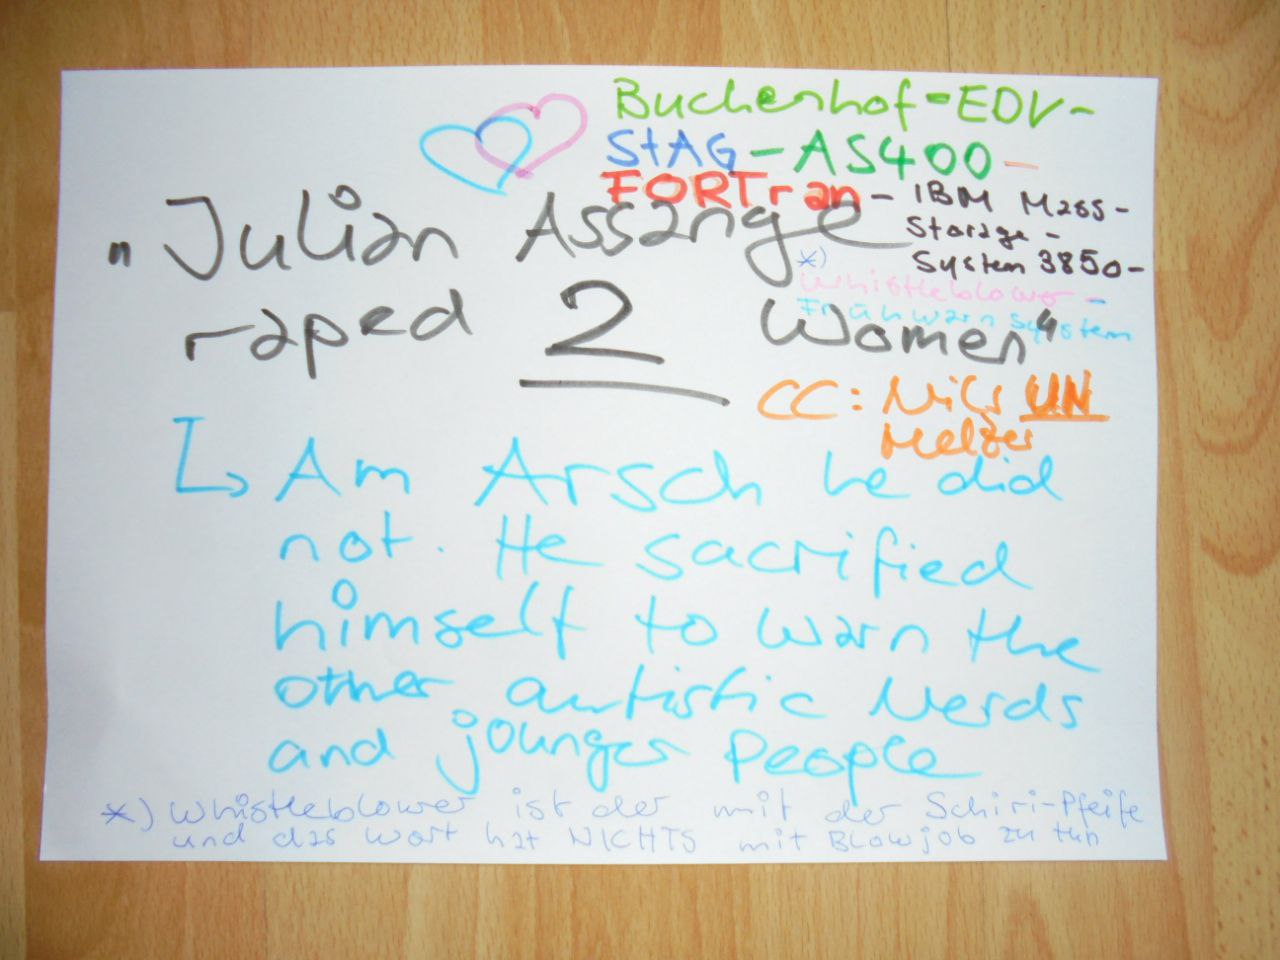 Buchenhof-EDV-
StAG-AS400-
FORTran-IBM Mass-
Storage-
System 3850-
*)
Whistleblower-
Frühwarnsystem
"Julian Assange
raped 2 Women"
CC: Nils UN
Melzer
↳ Am Arsch he did
not. He sacrified
himself to warn the
other autistic Nerds
and jounger People
*) Whistleblower ist der mit der Schiri-Pfeife
und das Wort hat NICHTS mit Blowjob zu tun